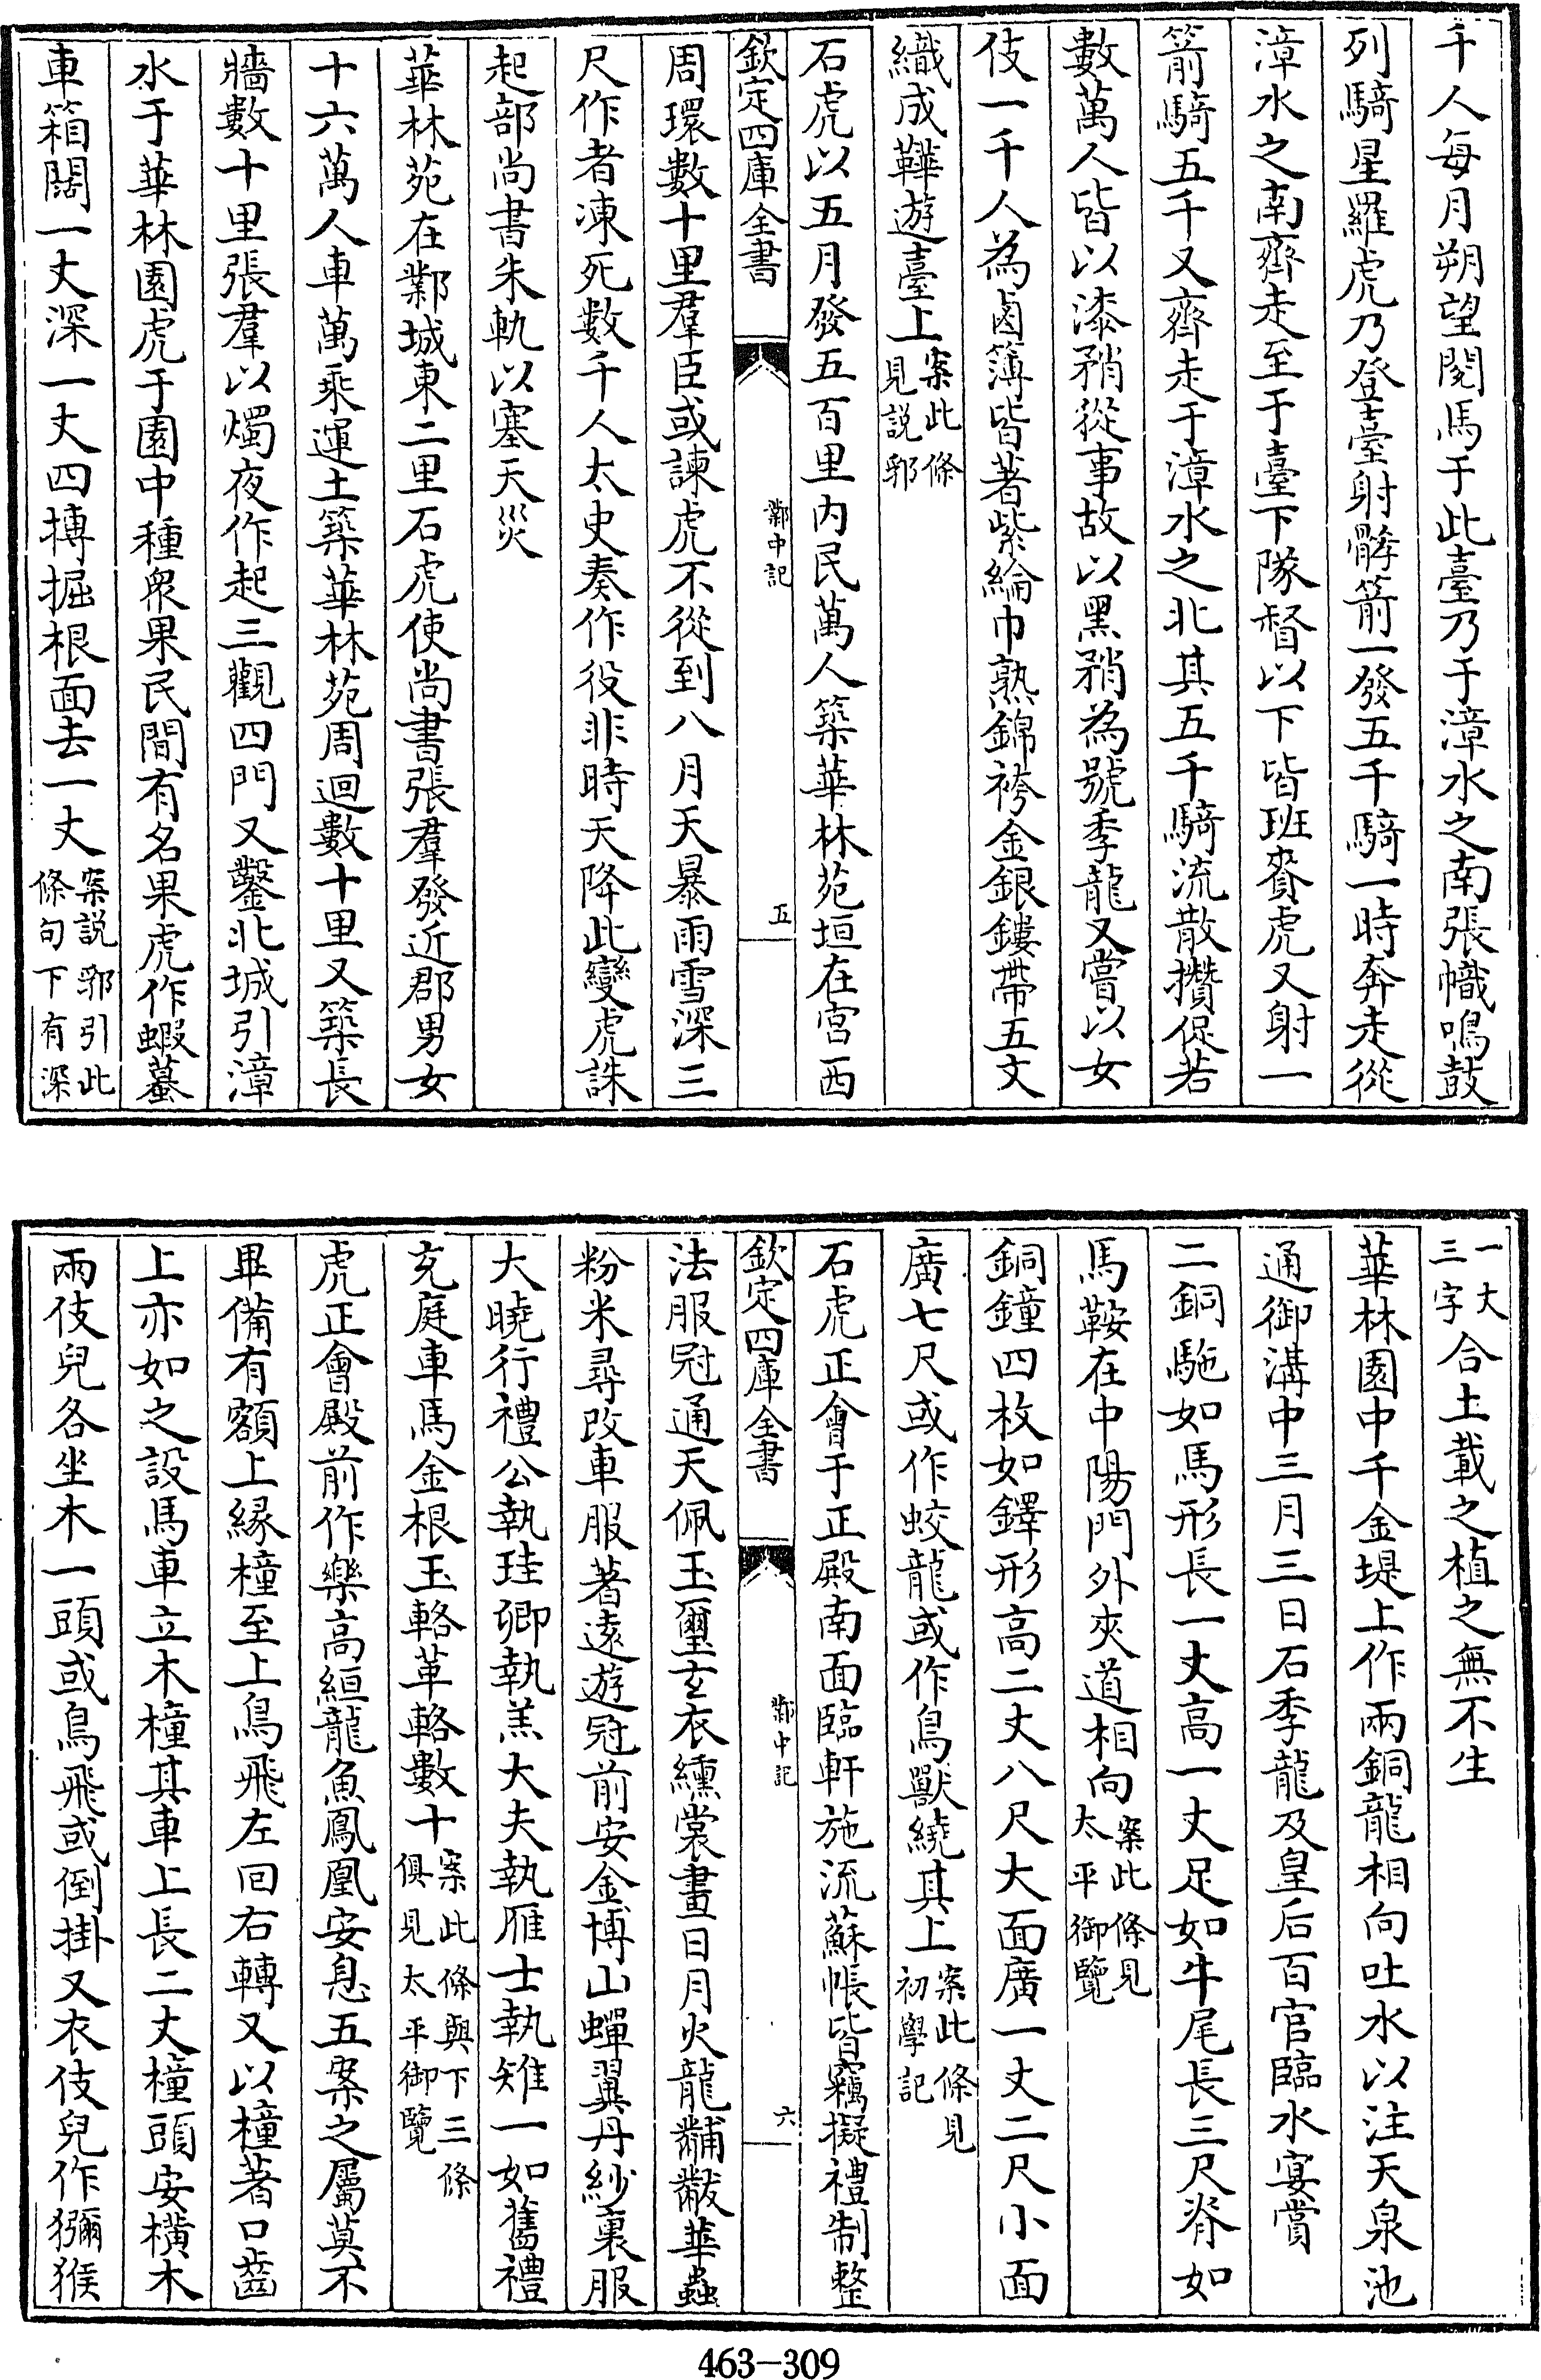 千人每月朔望閱馬于此臺乃于漳水之南張幟鳴鼓
列騎星羅虎乃登臺射髇箭一發五千騎一時奔走從
漳水之南齊走至于臺下隊督以下皆班賚虎又射一
箭騎五千又齊走于漳水之北其五千騎流散攢促若
數萬人皆以漆矟從事故以黑矟為號季龍又嘗以女
伎一千人為鹵簿皆著紫綸巾熟錦袴金銀鏤帶五文
織成鞾遊臺上案此條見説郛
石虎以五月發五百里內民萬人築華林苑垣在宮西
欽定四庫全書
鄴中記
五
周環數十里羣臣或諫虎不從到八月天暴雨雪深三
尺作者凍死數千人太史奏作役非時天降此變虎誅
起部尚書朱軌以塞天災
華林苑在鄴城東二里石虎使尚書張羣發近郡男女
十六萬人車萬乘運土築華林苑周迴數十里又築長
牆數十里張羣以燭夜作起三觀四門又鑿北城引漳
水于華林園虎于園中種衆果民間有名果虎作蝦蟇
車箱闊一丈深一丈四搏掘根面去一丈案説郛引此條句下有深
一丈三字合土載之植之無不生
華林園中千金堤上作兩銅龍相向吐水以注天泉池
通御溝中三月三日石季龍及皇后百官臨水宴賞
二銅駞如馬形長一丈高一丈足如牛尾長三尺脊如
馬鞍在中陽門外夾道相向案此條見太平御覽
銅鐘四枚如鐸形高二丈八尺大面廣一丈二尺小面
廣七尺或作蛟龍或作鳥獸繞其上案此條見初學記
石虎正會于正殿南面臨軒施流蘇帳皆竊擬禮制整
欽定四庫全書
鄴中記
六
法服冠通天佩玉璽玄衣纁裳畫日月火龍黼黻華蟲
粉米尋改車服著遠遊冠前安金博山蟬翼丹紗裏服
大曉行禮公執珪卿執羔大夫執雁士執雉一如舊禮
充庭車馬金根玉輅革輅數十案此條與下三條俱見太平御覽
虎正會殿前作樂高絙龍魚鳳凰安息五案之屬莫不
畢備有額上緣橦至上鳥飛左回右轉又以橦著口齒
上亦如之設馬車立木橦其車上長二丈橦頭安橫木
兩伎兒各坐木一頭或鳥飛或倒掛又衣伎兒作獼猴
463-309